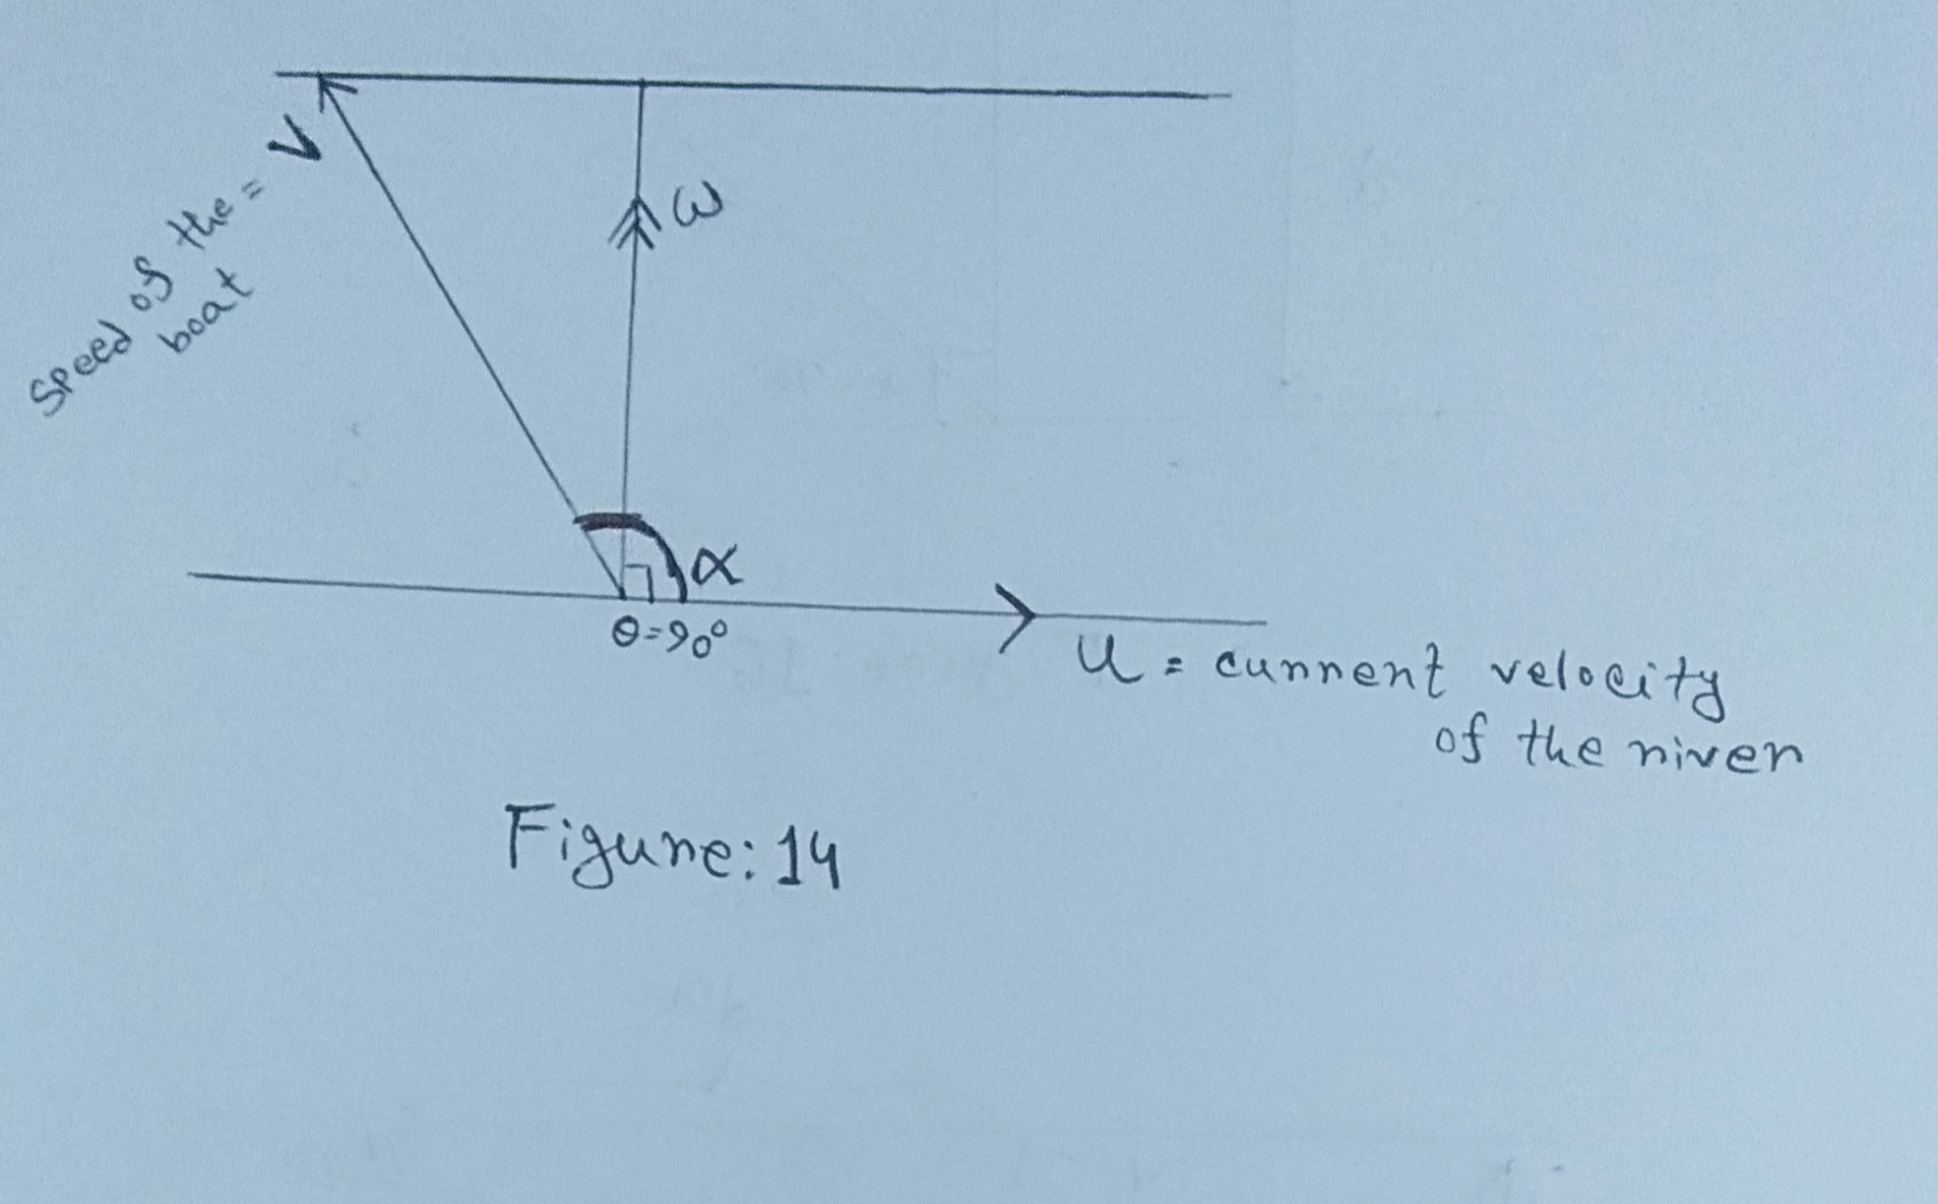 Speed of the = V
boat
ω
α
θ=90°
u = current velocity
of the river
Figure: 14